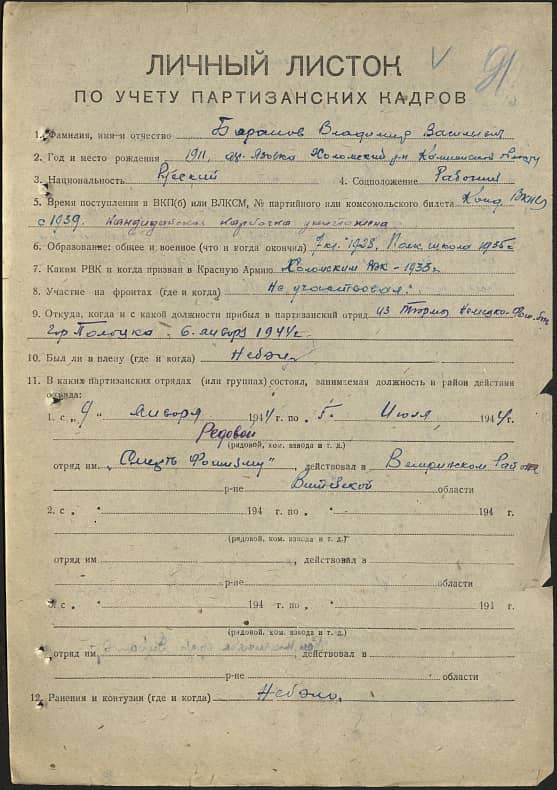 91
ЛИЧНЫЙ ЛИСТОК
ПО УЧЕТУ ПАРТИЗАНСКИХ КАДРОВ
1. Фамилия, имя и отчество Баранов Владимир Васильев
2. Год и место рождения 1911, Холмский р-н
3. Национальность Русский 4. Соцположение Рабочий
5. Время поступления в ВКП(б) или ВЛКСМ, № партийного или комсомольского билета Канд. ВКП(б)
с 1939. Кандидатская карточка уничтожена
6. Образование: общее и военное (что и когда окончил) 7 кл. 1928, Полк. школа 1935 г.
7. Каким РВК и когда призван в Красную Армию Холмским РВК - 1933 г.
8. Участие на фронтах (где и когда) Не участвовал.
9. Откуда, когда и с какой должности прибыл в партизанский отряд из Тюрмы Немецко-
гор Полоцка. 6 января 1944 г.
10. Был ли в плену (где и когда) Небыл
11. В каких партизанских отрядах (или группах) состоял, занимаемая должность и район действия
отряда:
1. с „9 „ января 1944 г. по „5. Июля 1944 г.
Редовой
(рядовой, ком. взвода и т. д.)
отряд им „Смерть Фошизму", действовал в Ветринском Районе
р-не Витебской области
2. с „ " 194 г. по „ " 194 г.
(рядовой, ком. взвода и т. д.)
отряд им , действовал в
р-не области
3. с „ " 194 г. по „ " 191 г.
(рядовой, ком. взвода и т. д.)
отряд им , действовал в
р-не области
12. Ранения и контузии (где и когда) Небыло.